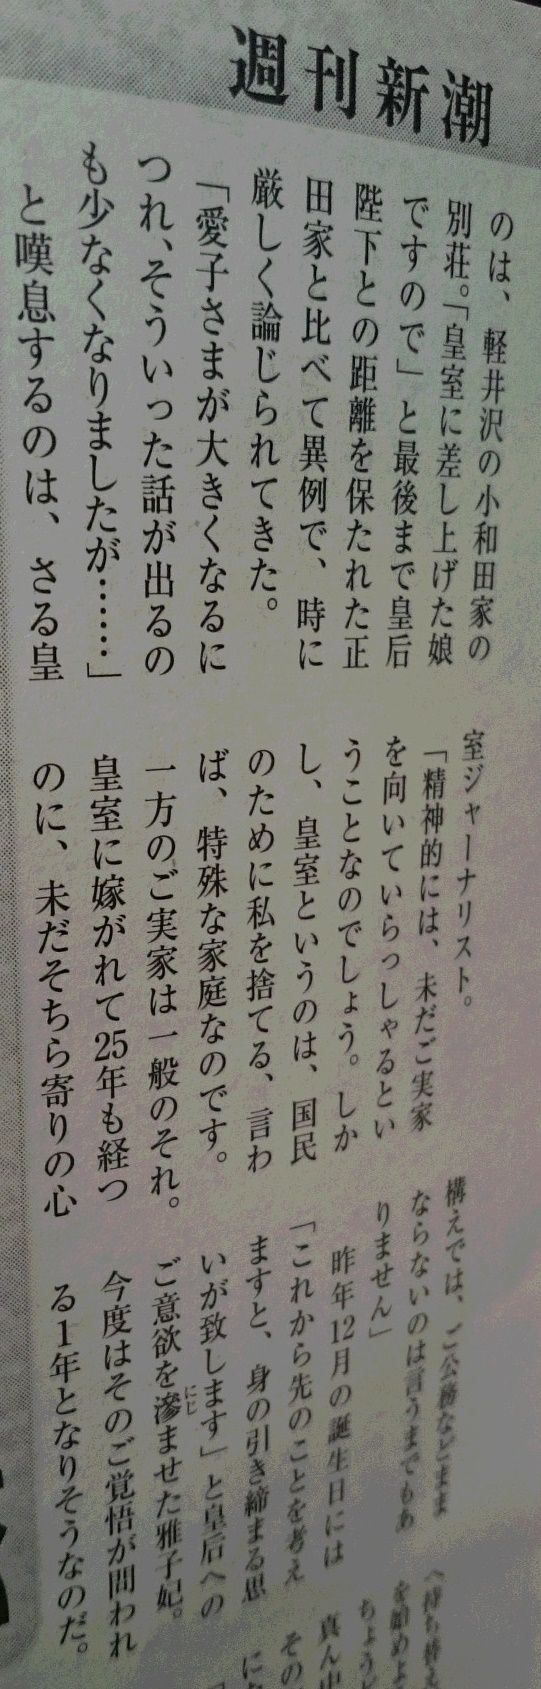 週刊新潮
のは、軽井沢の小和田家の
別荘。「皇室に差し上げた娘
ですので」と最後まで皇后
陛下との距離を保たれた正
田家と比べて異例で、時に
厳しく論じられてきた。
「愛子さまが大きくなるに
つれ、そういった話が出るの
も少なくなりましたが……」
と嘆息するのは、さる皇
室ジャーナリスト。
「精神的には、未だご実家
を向いていらっしゃるとい
うことなのでしょう。しか
し、皇室というのは、国民
のために私を捨てる、言わ
ば、特殊な家庭なのです。
一方のご実家は一般のそれ。
皇室に嫁がれて25年も経つ
のに、未だそちら寄りの心
構えでは、ご公務などまま
ならないのは言うまでもあ
りません」
昨年12月の誕生日には
「これから先のことを考え
ますと、身の引き締まる思
いが致します」と皇后への
ご意欲を滲ませた雅子妃。
にじ
今度はそのご覚悟が問われ
る1年となりそうなのだ。
を始めよ
ちょうど
真ん中
その
に